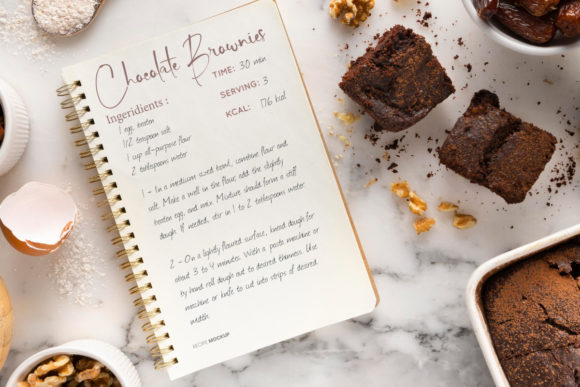 Chocolate Brownies
TIME: 30 min
SERVING: 3
KCAL: 176 kcal
Ingeridients :
1 egg, beaten
1/2 teaspoon salt
1 cup all-purpose flour
2 tablespoons water
1 - In a medium sized bowl, combine flour and
salt. Make a well in the flour, add the slightly
beaten egg, and mix. Mixture should form a stiff
dough. If needed, stir in 1 to 2 tablespoon water.
2 - On a lightly floured surface, knead dough for
about 3 to 4 minutes. With a pasta machine or
by hand roll dough out to desired thinness. Use
machine or knife to cut into strips of desired
width.
RECIPE MOCKUP